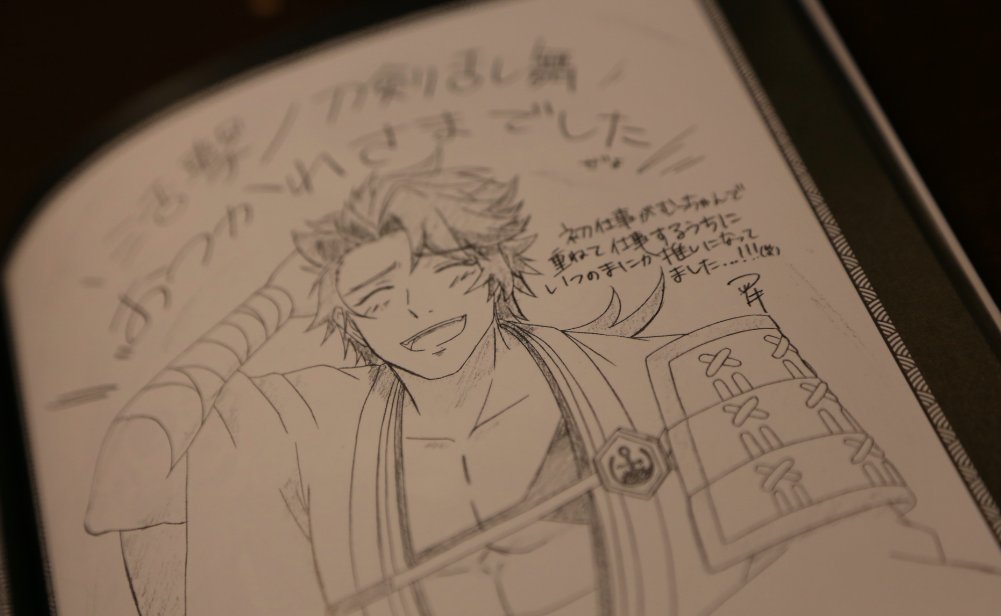 活撃/刀剣乱舞
おつかれさまでした
初仕事がむっちゃんで
重ねて仕事するうちに
いつのまにか推しになって
ました…!!!(笑)